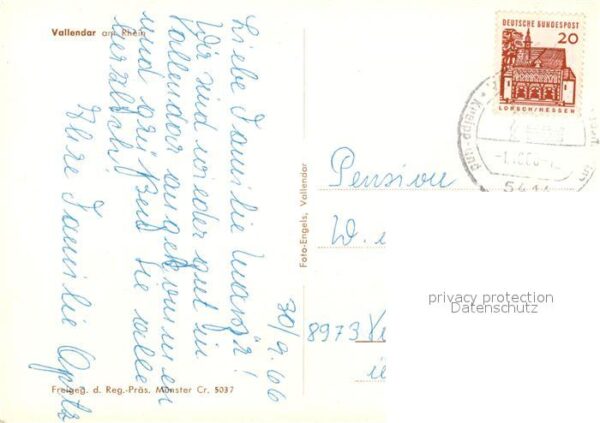 Vallendar am Rhein
Liebe Familie
Wir sind wieder gut in
Vallendar angekommen
und grüßen Sie alle
herzlich!
Ihre Familie
30/9.66
Freigeg. d. Reg.-Präs. Münster Cr. 5037
Foto-Engels, Vallendar
DEUTSCHE BUNDESPOST
20
LORSCH/HESSEN
Kneipp- und
Pension
W.
8973
privacy protection
Datenschutz